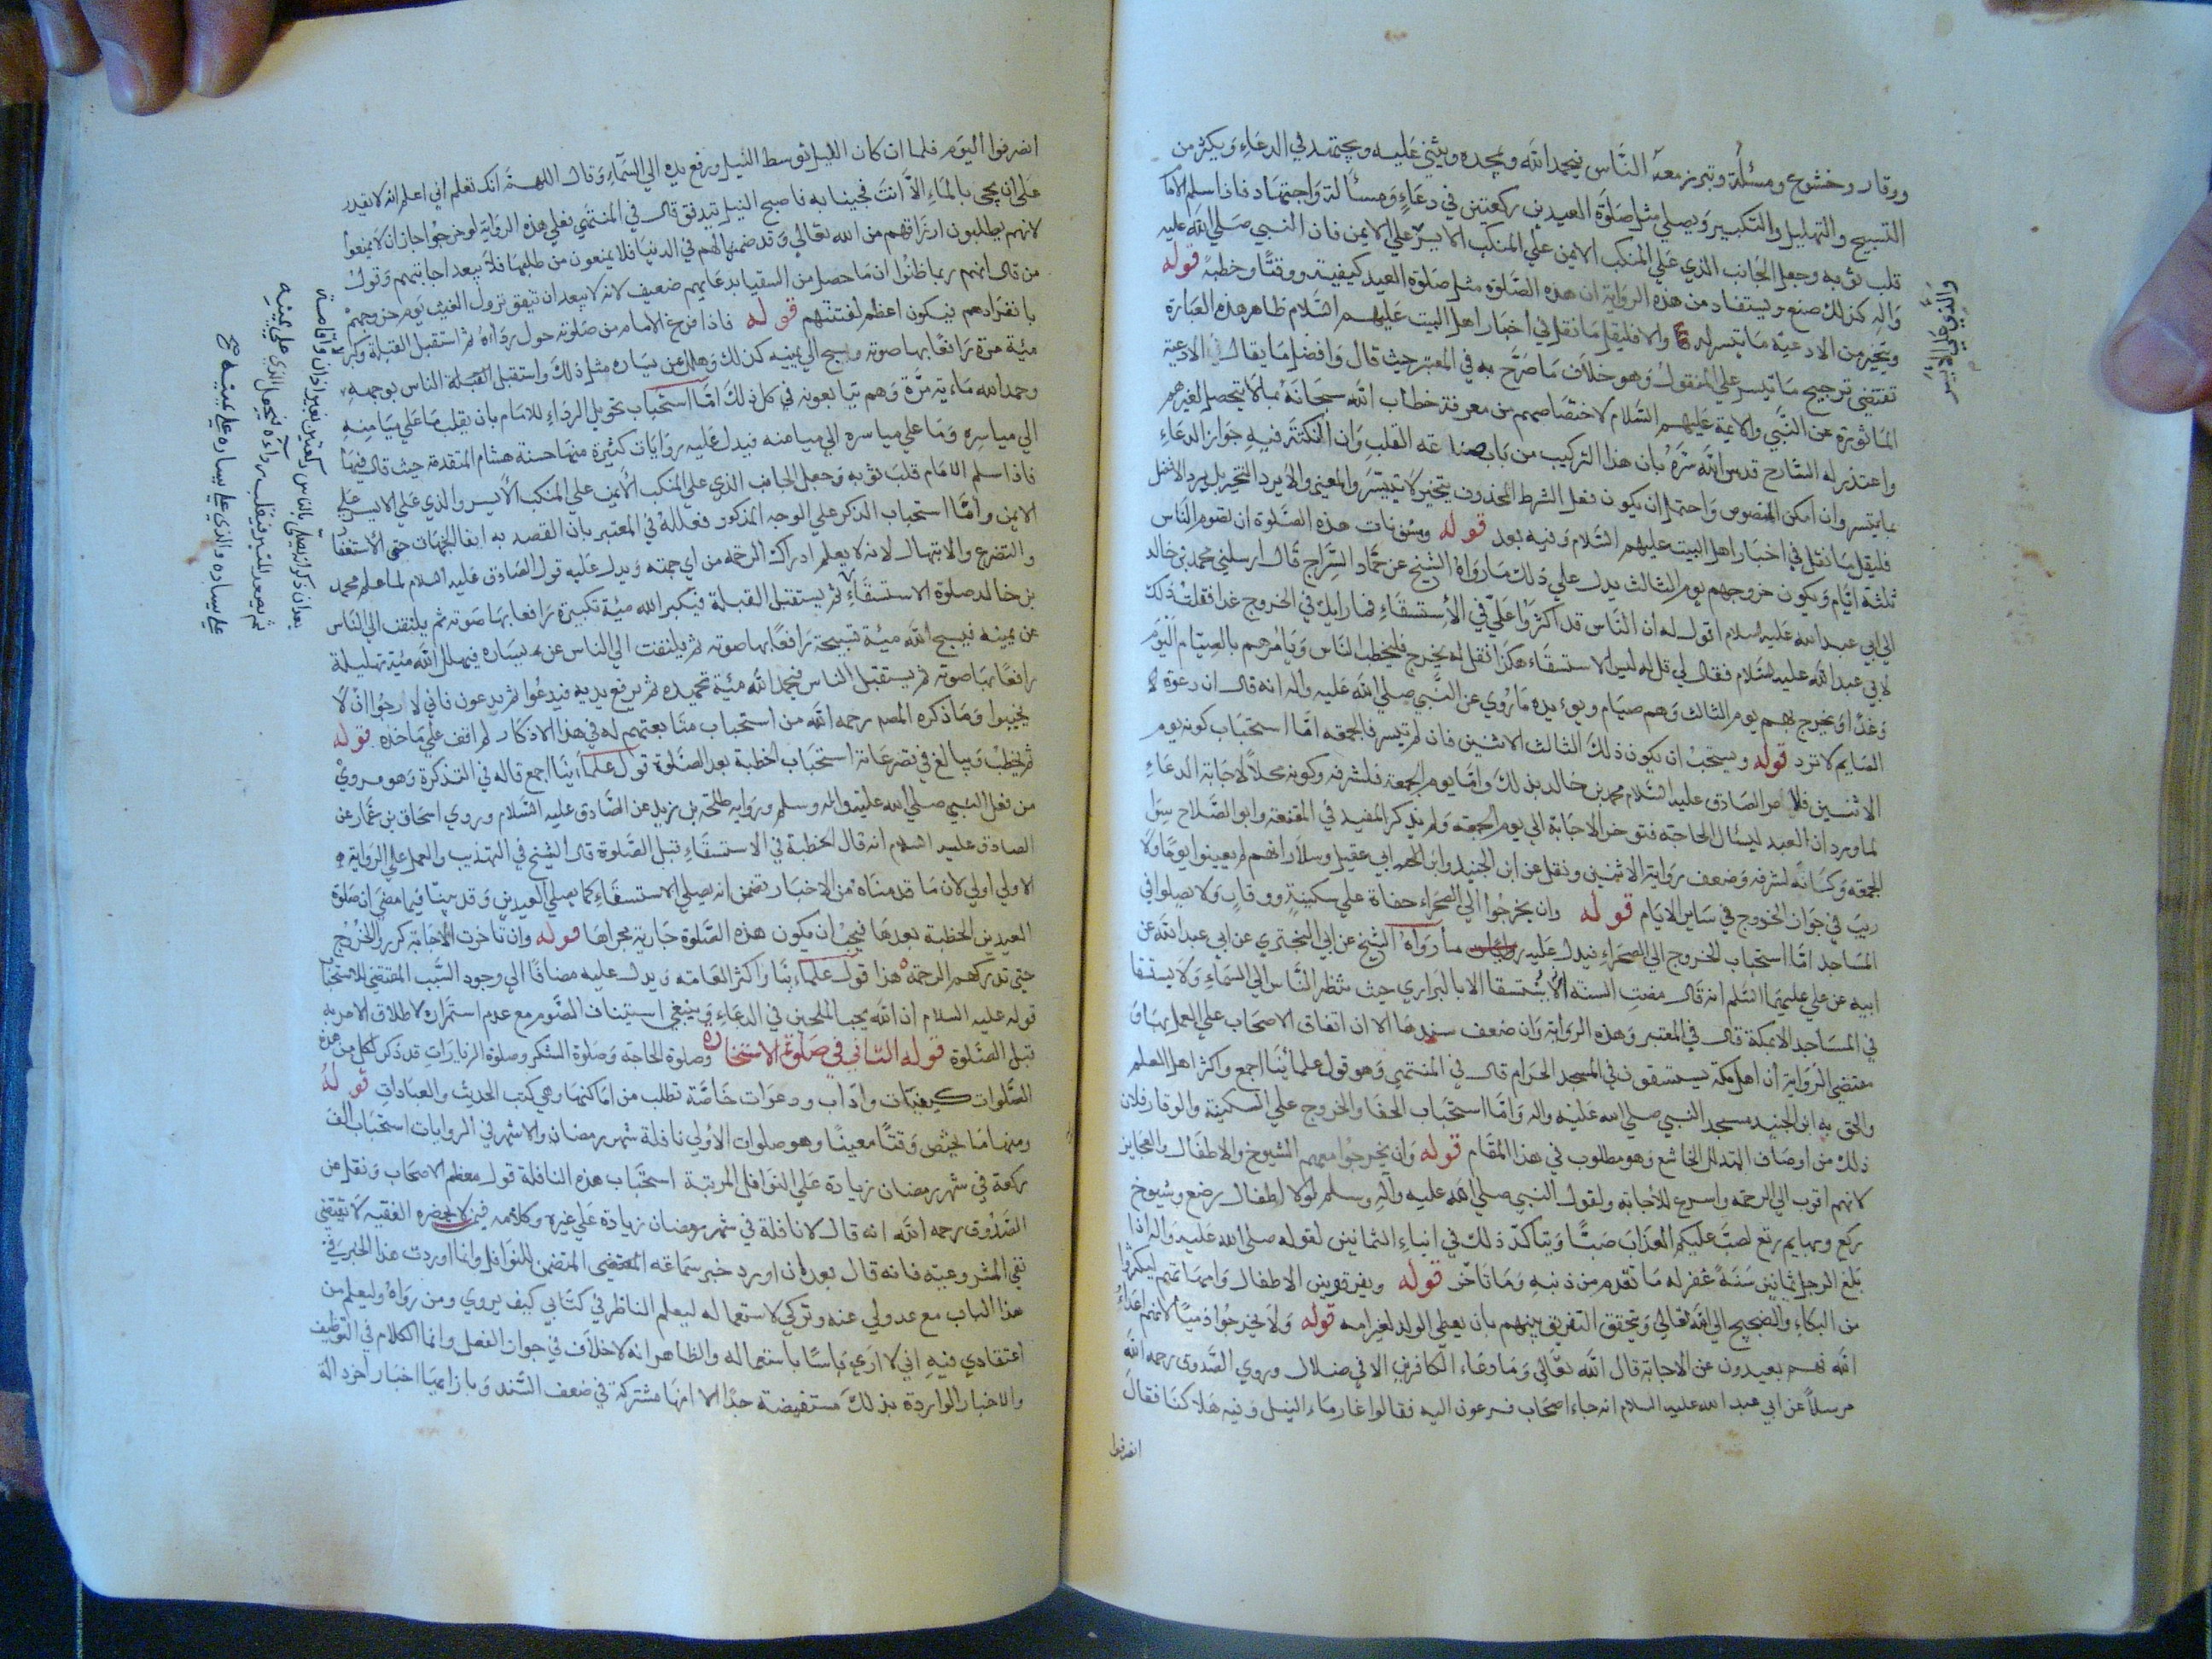 ووقار وخشوع ومسئلة وتبرز معه النَّاس فيحمد الله ويمجده ويثني عليه ويجتهد في الدعاءِ ويكثر من
التسبيح والتهليل والتكبير ويصلي مثل صلوة العيدين ركعتين في دعاءٍ ومسألة واجتهاد فاذا سلم الامام
قلب ثوبه وجعل الجانب الذي على المنكب الايمن على المنكب الايسر على الايمن فان النبي صلى الله عليه
وآله كذلك صنع ويستفاد من هذه الرواية ان هذه الصَّلوة مثل صلوة العيد كيفية ووقتًا وخطبة قوله
ويتخير من الادعية ما تيسر له والا فليقل ما نقل في اخبار اهل البيت عليهم السَّلام ظاهر هذه العبارة
تقتضي ترجيح ما تيسر على المنقول وهو خلاف ما صرَّح به في المعتبر حيث قال وافضل ما يقال الادعية
المأثورة عن النَّبي والائمة عليهم السَّلام لاختصاصهم من معرفة خطاب الله سبحانه بما لا يتحصل لغيرهم
واعتذر له الشارح قدس الله سرّه بان هذا التركيب من باب القلب وان النكتة فيه جواز الدعاءِ
بما تيسر وان امكن المنصوص واحتمل ان يكون فعل الشرط المحذوف يتخير لا يتيسَّر والمعنى والا يرد التخير بل يرد الافضل
فليقل ما نقل في اخبار اهل البيت عليهم السَّلام وفيه بعد قوله ومسنونات هذه الصَّلوة ان يصوم النَّاس
ثلثة ايَّام ويكون خروجهم يوم الثالث يدل على ذلك ما رواه الشيخ عن حمَّاد السَّراج قال ارسلني محمد بن خالد
الى ابي عبد الله عليه السلام اقول له ان النَّاس قد اكثروا عليّ في الاستسقاءِ فما رايك في الخروج غدا فقلت ذلك
لابي عبد الله عليه السَّلام فقال لي قل له ليس الاستسقاء هكذا فقل له يخرج فيخطب النَّاس ويامرهم بالصيام اليوم
وغدًا ويخرج بهم يوم الثالث وهم صيام ويويده ما رُوي عن النَّبي صلى الله عليه واله انه قال ان دعوة
الصايم لا ترد قوله ويستحب ان يكون ذلك الثالث الاثنين فان لم تيسر فالجمعه امَّا استحباب كونه يوم
الاثنين فلامر الصَّادق عليه السَّلام محمد بن خالد بذلك وامَّا يوم الجمعة فلشرفه وكونه محلًا لاجابة الدعاءِ
لما ورد ان العبد ليسال الحاجة فتوخر الاجابة الى يوم الجمعه ولم يذكر المفيد في المقنعة وابو الصَّلاح سوى
الجمعه وكانّه لشرفه وضعف رواية الاثنين ونقل عن ابن الجنيد وابن ابي عقيل وسلار انهم لم يعينوا يومًا ولا
ريب في جواز الخروج في ساير الايام قوله وان يخرجُوا الى الصحراء حفاة على سكينةٍ ووقارٍ ولا يصلوا في
المساجد امَّا استحباب الخروج الى الصحراءِ فيدل عليه ما رواه الشيخ عن ابي البختري عن ابي عبد الله عن
ابيه عن علي عليهما السَّلم انه قال مضت السنة انه لا يُستسقا الا بالبراري حيث ينظر النَّاس الى السماءِ ولا يستسقا
في المساجد الا بمكة قال في المعتبر وهذه الرواية وان ضعف سندها الا ان اتفاق الاصحاب على العمل بها و
مقتضى الرواية ان اهل مكة يستسقون في المسجد الحرام قال في المنتهى وهو قول علمائنا اجمع واكثر اهل العلم
والحق به ابن الجنيد مسجد النبي صلى الله عليه واله وامَّا استحباب الحفا والخروج على السكينة والوقار فلان
ذلك من اوصاف المتذلل الخاشع وهو مطلوب في هذا المقام قوله وان يخرجُوا معهم الشيوخ والاطفال والعجايز
لانهم اقرب الى الرحمة واسرع للاجابة ولقول النبي صلى الله عليه وآله وسلم لولا اطفال رضع وشيوخ
ركع وبهايم رتع لصبَّ عليكم العذاب صبًّا ويتأكد ذلك في ابناءِ الثمانين لقوله صلى الله عليه واله اذا
بلغ الرجل ثمانين سنةً غفر له ما تقدم من ذنبه وما تأخّر قوله ويفرقوا بين الاطفال وامهاتهم ليكثروا
من البكاءِ والضجيج الى الله تعالى ويتحقق التفريق بينهم بان يعطى الولد لغير امه قوله ولا يخرجوا ذميًّا لانهم اعداءُ
الله فهم بعيدون عن الاجابة قال الله تعالى وما دعاء الكافرين الا في ضلال وروي الصَّدوق رحمه الله
مرسلًا عن ابي عبد الله عليه السلام انه جاء اصحاب فرعون اليه فقالوا غار ماء النيل وفيه هلاكنا فقال
انصرفوا
انصرفوا اليوم فلما ان كان الليل توسط النيل ورفع يده الى السَّماءِ وقال اللهمَّ انك تعلم اني اعلم انه لا يقدر
على ان يجي بالماءِ الا انت فجئنا به فاصبح النيل يتدفق قال في المنتهى فعلى هذه الرواية لو خرجُوا جاز ان لا يمنعوا
لانهم يطلبون ارزاقهم من الله تعالى وقد ضمنها لهم في الدنيا فلا يمنعون من طلبها فلا يبعد اجابتهم وقول
من قال انهم ربما ظنُوا ان ما حصل من السقيا بدعايهم ضعيف لانه لا يبعد ان يتفق نزول الغيث يوم خروجهم
بانفرادهم فيكون اعظم لفتنتهم قوله فاذا فرغ الامام من صلوته حول رداءه ثم استقبل القبلة وكبر
مئية مرّة رافعًا بها صوته وسبح الى يمينه كذلك وهلل عن يساره مثل ذلك واستقبل الناس بوجهه
وحمد الله ماءية مرَّة وهم يتابعونه في كل ذلك امَّا استحباب تحويل الرداءِ للامام بان يقلب ما على ميامنه
الى مياسره وما على مياسره الى ميامنه فيدل عليه روايات كثيرة منها حسنة هشام المتقدمة حيث قال فيها
فاذا سلم الامام قلب ثوبه وجعل الجانب الذي على المنكب الايمن على المنكب الايسر والذي على الايسر على
الايمن وامَّا استحباب الذكر على الوجه المذكور فعلله في المعتبر بان القصد به ايفا الجهات حق الاستغفا
والتضرع والابتهال لانه لا يعلم ادراك الرحمه من اي جهته ويدل عليه قول الصادق عليه السلام لما علم محمد
بن خالد صلوة الاستسقاءِ ثم يستقبل القبلة فيكبر الله مئية تكبيرة رافعا بها صوته ثم يلتفت الى النَّاس
عن يمينه فيسبح الله مئية تسبيحة رافعًا بها صوته ثم يلتفت الى الناس عن يساره فيهلل الله مئية تهليلة
رافعًا بها صوته ثم يستقبل الناس فيحمد الله مئية تحميده ثم يرفع يديه فيدعُوا ثم يدعون فاني لارجُوا ان لا
يخيبوا وما ذكره المصـ رحمه الله من استحباب متابعتهم له في هذا الاذكار لم اقف على ماخذه قوله
ثم يخطب ويبالغ في تضرعاته استحباب الخطبة بعد الصَّلوة قول علماءِنا اجمع قاله في التذكرة وهو مروىْ
من فعل النبي صلى الله عليه واله وسلم ورواية طلحة بن زيد عن الصَّادق عليه السَّلام وروي اسحاق بن عمَّار عن
الصادق عليه السلام انه قال الخطبة في الاستسقاءِ قبل الصَّلوة قال الشيخ في التهذيب والعمل على الرواية
الاولى اولى لان ما قدمناه من الاخبار تضمن انه يصلي الاستسقاءِ كما يصلي العيدين وقد بينَّا فيما مضى ان صلوة
العيدين الخطبة بعدها فيجب ان يكون هذه الصَّلوة جارية مجراها قوله وان تاخرت الاجابة كرر والخروج
حتى تدركهم الرحمة هذا قول علماءِنا واكثر العامه ويدل عليه مضافًا الى وجود السَّبب المقتضي للاستحباب
قوله عليه السلام ان الله يحب الملحين في الدعاءِ وينبغي استيناف الصَّوم مع عدم استمراره لاطلاق الامر به
قبل الصَّلوة قوله الثاني في صلوة الاستخاره وصلوة الحاجة وصلوة الشكر وصلوة الزيارات قد ذكر لكل من هذه
الصَّلوات كيفيَّات واداب ودعوات خاصَّة تطلب من اماكنها وهي كتب الحديث والعبادات قوله
ومنها ما يختص وقتًا معينًا وهو صلوات الاولى نافلة شهر رمضان والاشهر في الروايات استحباب الف
ركعة في شهر رمضان زيادة على النوافل المرتبة استحباب هذه النافلة قول معظم الاصحاب ونقل عن
الصَّدوق رحمه الله انه قال لا نافلة في شهر رمضان زيادة على غيره وكلامه فيمن لا يحضره الفقيه لا يقتضي
نفي المشروعية فانه قال بعد ان اورد خبر سماعه المتضمن للنوافل وانما اوردت هذا الخبر في
هذا الباب مع عدولي عنه وتركي لاستعماله ليعلم الناظر في كتابي كيف يروي ومن رواه وليعلم من
اعتقادي فيه اني لا ارى باسًا باستعماله والظاهر انه لا خلاف في جواز الفعل وانما الكلام في التوظيف
والاخبار الواردة بذلك مستفيضة جدًا الا انها مشتركة في ضعف السَّند وبازايها اخبار اخر دالة
بعد ان ذكر انه يصلي بالناس ركعتين بغير اذان ولا اقامة
ثم يصعد المنبر فيقلب رداءه فيجعل الذي على يمينه
على يساره والذي على يساره على يمينه صح